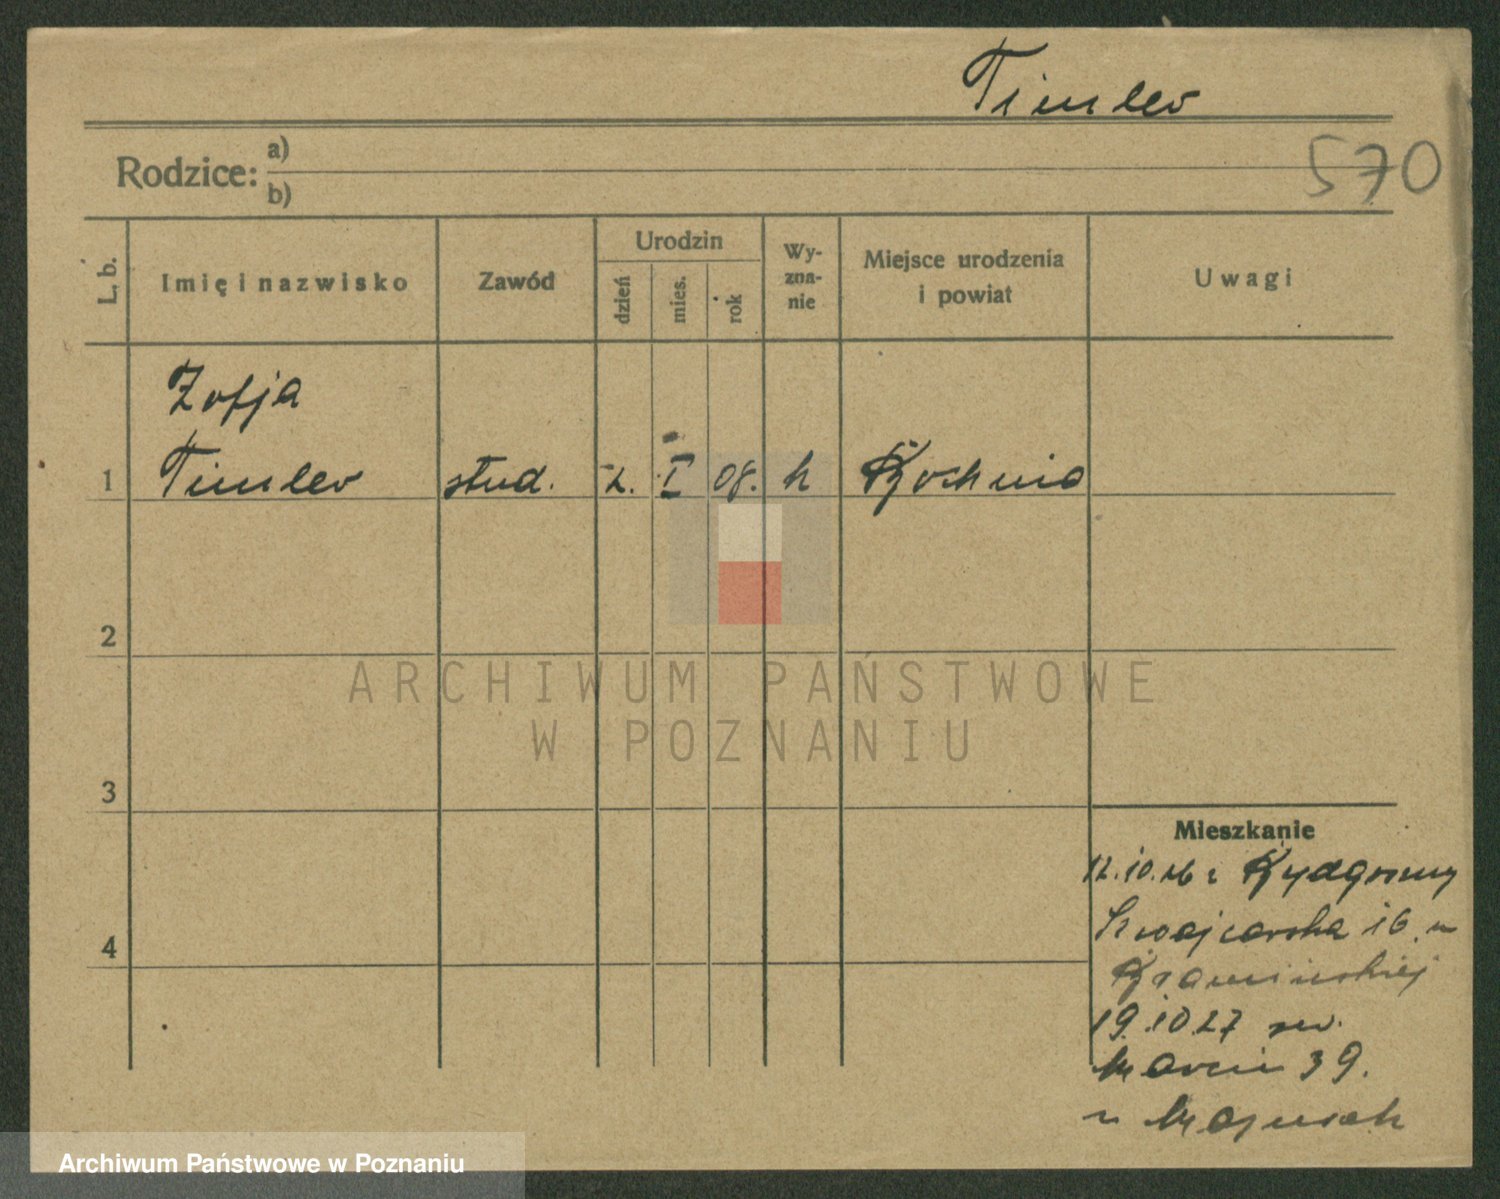 Timler
570
Rodzice: a)
b)
L. b.
Imię i nazwisko
Zawód
Urodzin
dzień
mies.
rok
Wy-
zna-
nie
Miejsce urodzenia
i powiat
Uwagi
Zofja
1 Timler stud. 2. I 08. h Bochnia
2
ARCHIWUM PAŃSTWOWE
W POZNANIU
3
Mieszkanie
12.10.26 z Bydgoszczy
Szwajcarska 16. u
4
19.10 27 św.
Marcin 39.
u
Archiwum Państwowe w Poznaniu